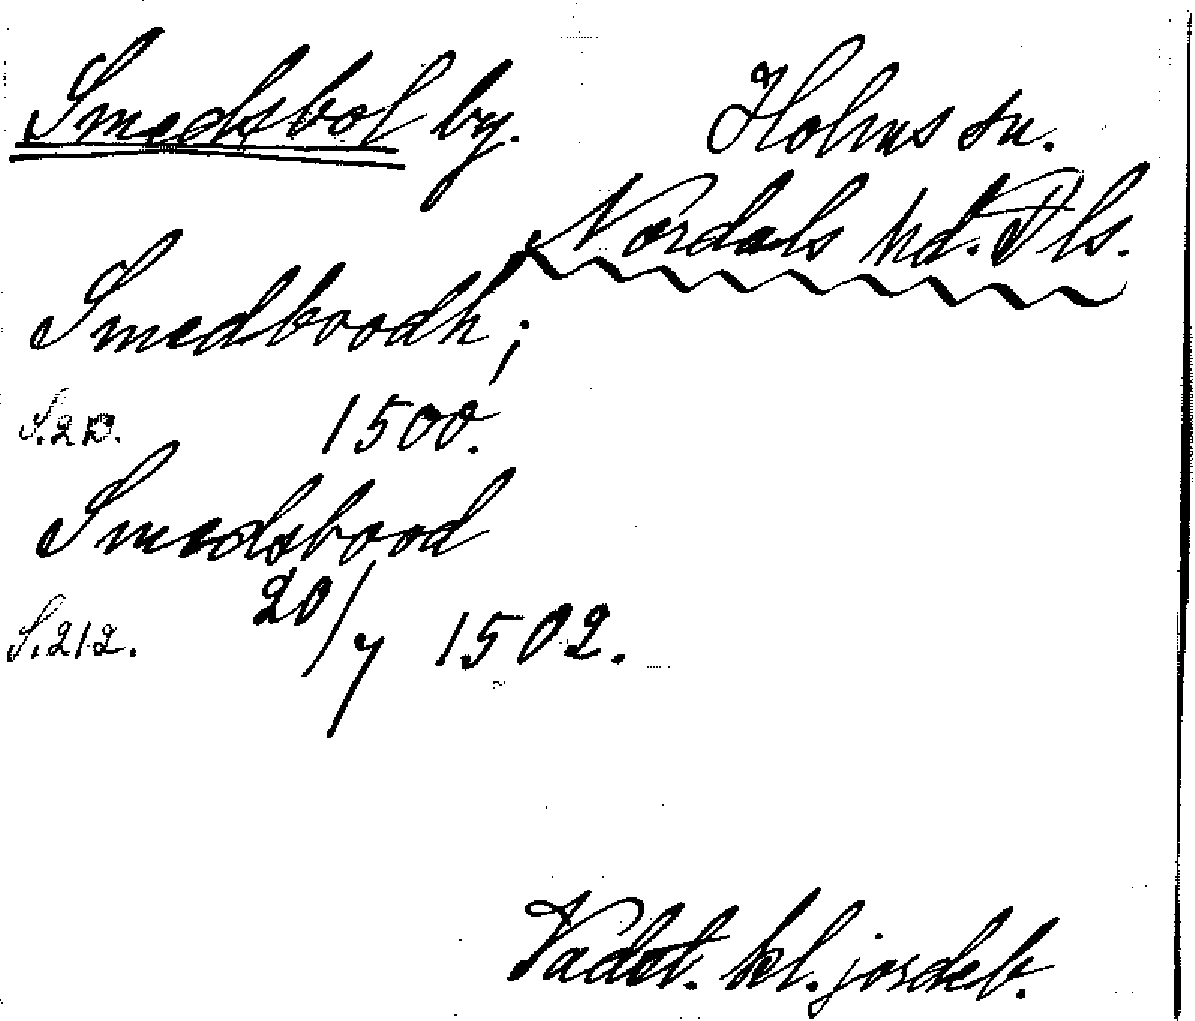 Smedsbol by.
Holms sn.
Nordals hd. Dls.
Smedboodh;
S. 212. 1500.
Smedsbood
S. 212. 20/7 1502.
Vadst. kl. jordeb.